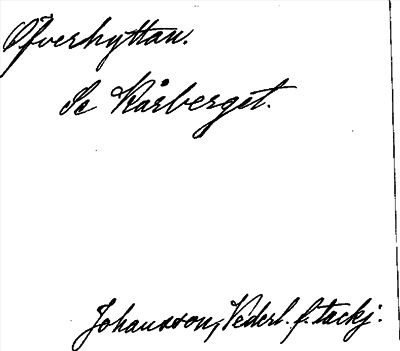 Öfverhyttan.
Se Kårberget.
Johansson, Vederl. f. tackj.